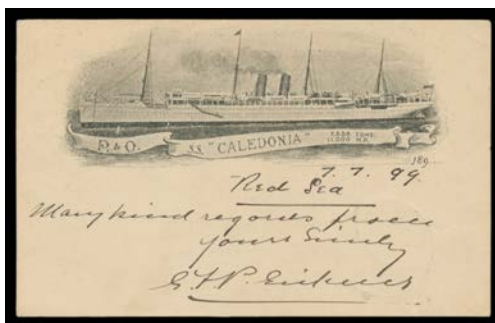 P. & O. S.S. "CALEDONIA" 7,558 TONS. 11,000 H.P.
189
7. 7. 99
Red Sea
Many kind regards from
yours